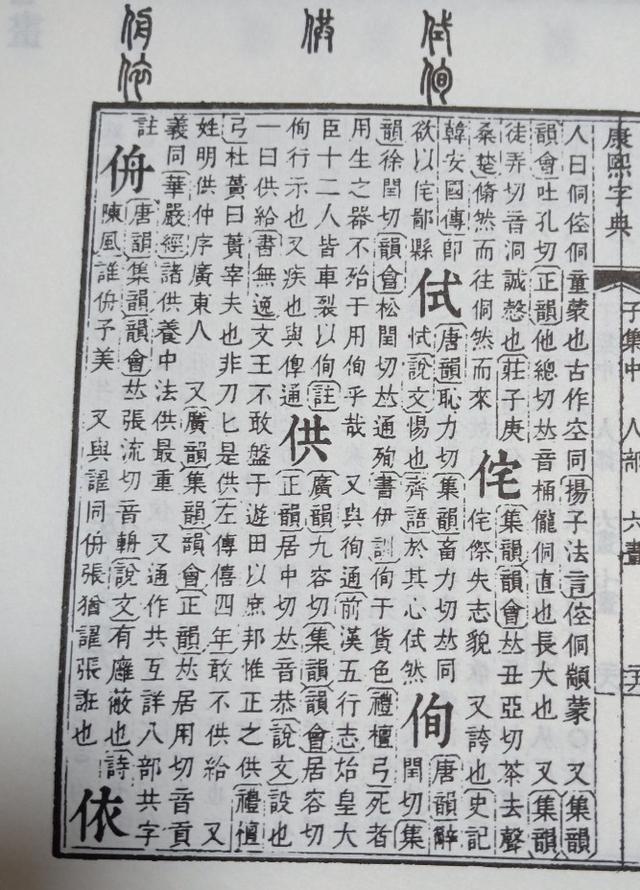 侙侚
供
侜依
康熙字典 子集中 人部 六畫
人曰侗倥侗童蒙也古作空同揚子法言倥侗顓蒙 又集韻
韻會吐孔切正韻他總切𠀤音桶儱侗直也長大也 又集韻
徒弄切音洞誠慤也莊子庚
桑楚翛然而往侗然而來
侘 集韻韻會𠀤丑亞切茶去聲
侘傺失志貌 又誇也史記
韓安國傳卽
欲以侘鄙縣
侙 唐韻恥力切集韻畜力切𠀤同
恜說文惕也齊語於其心侙然
侚 唐韻辭
閏切集
韻徐閏切韻會松閏切𠀤通殉書伊訓侚于貨色禮檀弓死者
用生之器不殆于用侚乎哉 又與徇通前漢五行志始皇大
臣十二人皆車裂以侚註
侚行示也又疾也與通
供 廣韻九容切集韻韻會居容切
正韻居中切𠀤音恭說文設也
一曰供給書無逸文王不敢盤于遊田以庶邦惟正之供禮檀
弓杜蕢曰蕢宰夫也非刀匕是供左傳僖四年敢不供給 又
姓明供仲序廣東人 又廣韻集韻韻會正韻𠀤居用切音貢
義同華嚴經諸供養中法供最重 又通作共互詳八部共字
註
侜 唐韻集韻韻會𠀤張流切音輈說文有廱蔽也詩
陳風誰侜予美 又與譸同侜張猶譸張誑也
依